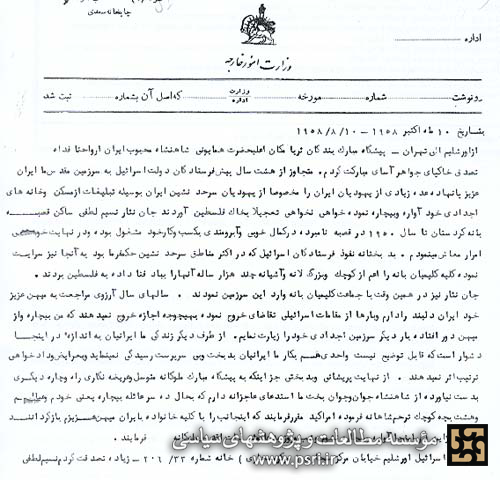 چاپخانه سعدی
اداره
وزارت امور خارجه
رونوشت شماره مورخه وزارت اداره که اصل آن بشماره ثبت شد
بتاریخ ۱۰ ماه اکتبر ۱۹۵۸ - ۱۹۵۸/۸/۱۰
از اورشلیم الی تهران - پیشگاه مبارک بندگان ثریا مکان اعلیحضرت همایونی شاهنشاه محبوب ایران ارواحنا فداه
تصدق خاکپای جواهر آسای مبارکت کردم. متجاوز از هشت سال پیش فرستادگان دولت اسرائیل به سرزمین مقدس ما ایران
عزیز پانهاده عده زیادی از یهودیان ایران را مخصوصا از یهودیان سرحد نشین ایران بوسیله تبلیغات از مسکن وخانه های
اجدادی خود آواره وبیچاره نموده خواهی نخواهی تعجیلا بخاک فلسطین آوردند جان نثار نسیم لطفی ساکن قصبه
بانه کردستان تا سال ۱۹۵۰ در قصبه نامبرده درکمال خوبی وآبرومندی بکسب وکار خود مشغول بوده ودر نهایت خوشی
امرار معاش مینمودم. بدبختانه نفوذ فرستادگان اسرائیل که در اکثر مناطق سرحد نشین حکمفرما بود به آنجا نیز سرایت
نموده کلیه کلیمیان بانه را اعم از کوچک وبزرگ لانه وآشیانه چند هزار ساله آنها را بباد فنا داده به فلسطین بردند.
جان نثار نیز در همین وقت با جماعت کلیمیان بانه وارد این سرزمین نمودند. سالهای سال آرزوی مراجعت به میهن عزیز
خود ایران دلبند را دارم وبارها از مقامات اسرائیلی تقاضای خروج نموده بهیچوجه اجازه خروج نمیدهند که من بیچاره واز
میهن دور افتاده بار دیگر سرزمین اجدادی خود را زیارت نمایم. از طرف دیگر زندگی ما ایرانیان به اندازه در اینجا
دشوار است که قابل توضیح نیست واحدی هم بکار ما ایرانیان بدبخت وبی سرپرست رسیدگی نمینماید وبعرایض وداد خواهی
ترتیب اثر نمیدهند. از نهایت پریشانی وبدبختی جز اینکه به پیشگاه مبارک ملوکانه متوسل وعریضه نگاری راه وچاره دیگری
بدست نیاورده از شاهنشاه جوان وجوان بخت ما استدعای عاجزانه دارم که بحال ده سر عائله بیچاره یعنی خودم وعیالم
وهشت بچه کوچک ترحم شاهانه فرموده امر اکید مقرر فرمایند که اینجانب را با کلیه خانواده بایران میهن عزیزم بازگردانند
فرمایند.
اسرائیل اورشلیم خیابان خانه شماره ۲۰۶/۳۳ - زیاده تصدقت گردم نسیم لطفی
مؤسسه مطالعات و پژوهشهای سیاسی
www.psri.ir